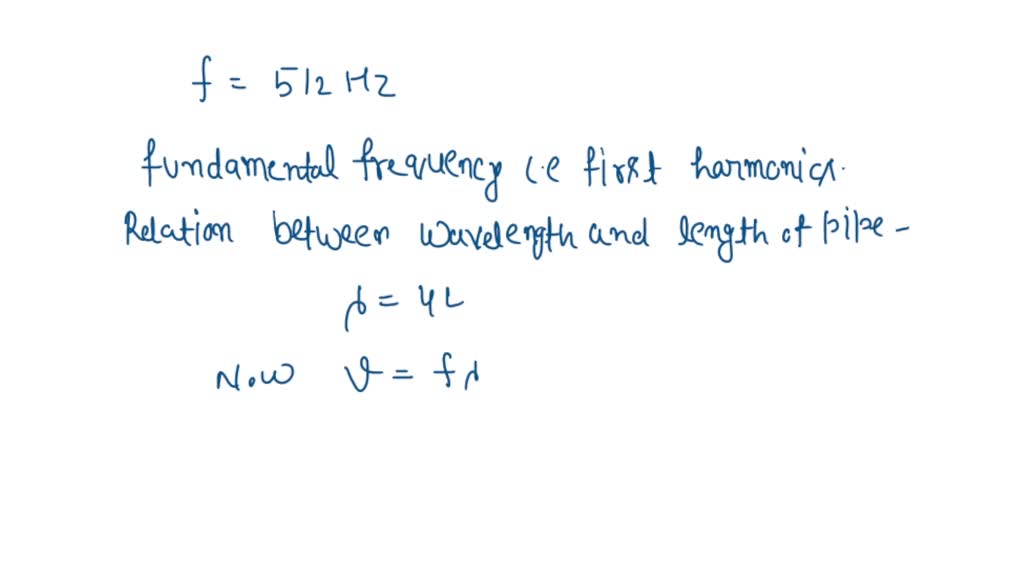 f = 512 Hz
fundamental frequency i.e first harmonics.
Relation between wavelength and length of pipe -
λ = 4L
Now v = fλ